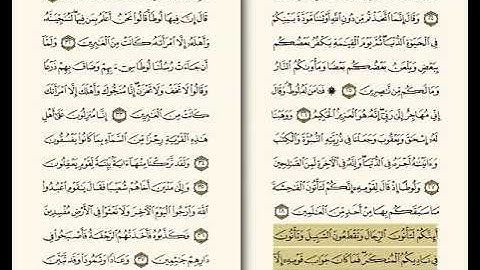 ﴿٢٤﴾ وَقَالَ إِنَّمَا ٱتَّخَذۡتُم مِّن دُونِ ٱللَّهِ أَوۡثَٰنٗا مَّوَدَّةَ بَيۡنِكُمۡ
فِي ٱلۡحَيَوٰةِ ٱلدُّنۡيَاۖ ثُمَّ يَوۡمَ ٱلۡقِيَٰمَةِ يَكۡفُرُ بَعۡضُكُم
بِبَعۡضٖ وَيَلۡعَنُ بَعۡضُكُم بَعۡضٗا وَمَأۡوَىٰكُمُ ٱلنَّارُ
وَمَا لَكُم مِّن نَّٰصِرِينَ ﴿٢٥﴾ ۞ فَـَٔامَنَ لَهُۥ لُوطٞۘ وَقَالَ
إِنِّي مُهَاجِرٌ إِلَىٰ رَبِّيٓۖ إِنَّهُۥ هُوَ ٱلۡعَزِيزُ ٱلۡحَكِيمُ ﴿٢٦﴾ وَوَهَبۡنَا
لَهُۥٓ إِسۡحَٰقَ وَيَعۡقُوبَ وَجَعَلۡنَا فِي ذُرِّيَّتِهِ ٱلنُّبُوَّةَ وَٱلۡكِتَٰبَ
وَءَاتَيۡنَٰهُ أَجۡرَهُۥ فِي ٱلدُّنۡيَاۖ وَإِنَّهُۥ فِي ٱلۡأٓخِرَةِ لَمِنَ ٱلصَّٰلِحِينَ
﴿٢٧﴾ وَلُوطًا إِذۡ قَالَ لِقَوۡمِهِۦٓ إِنَّكُمۡ لَتَأۡتُونَ ٱلۡفَٰحِشَةَ
مَا سَبَقَكُم بِهَا مِنۡ أَحَدٖ مِّنَ ٱلۡعَٰلَمِينَ ﴿٢٨﴾
أَئِنَّكُمۡ لَتَأۡتُونَ ٱلرِّجَالَ وَتَقۡطَعُونَ ٱلسَّبِيلَ وَتَأۡتُونَ
فِي نَادِيكُمُ ٱلۡمُنكَرَۖ فَمَا كَانَ جَوَابَ قَوۡمِهِۦٓ إِلَّآ
قَالَ إِنَّ فِيهَا لُوطٗاۚ قَالُواْ نَحۡنُ أَعۡلَمُ بِمَن فِيهَاۖ لَنُنَجِّيَنَّهُۥ
وَأَهۡلَهُۥٓ إِلَّا ٱمۡرَأَتَهُۥ كَانَتۡ مِنَ ٱلۡغَٰبِرِينَ ﴿٣٢﴾ وَلَمَّآ
أَن جَآءَتۡ رُسُلُنَا لُوطٗا سِيٓءَ بِهِمۡ وَضَاقَ بِهِمۡ ذَرۡعٗا
وَقَالُواْ لَا تَخَفۡ وَلَا تَحۡزَنۡ إِنَّا مُنَجُّوكَ وَأَهۡلَكَ إِلَّا ٱمۡرَأَتَكَ
كَانَتۡ مِنَ ٱلۡغَٰبِرِينَ ﴿٣٣﴾ إِنَّا مُنزِلُونَ عَلَىٰٓ أَهۡلِ
هَٰذِهِ ٱلۡقَرۡيَةِ رِجۡزٗا مِّنَ ٱلسَّمَآءِ بِمَا كَانُواْ يَفۡسُقُونَ
﴿٣٤﴾ وَلَقَد تَّرَكۡنَا مِنۡهَآ ءَايَةَۢ بَيِّنَةٗ لِّقَوۡمٖ يَعۡقِلُونَ
﴿٣٥﴾ وَإِلَىٰ مَدۡيَنَ أَخَاهُمۡ شُعَيۡبٗا فَقَالَ يَٰقَوۡمِ ٱعۡبُدُواْ
ٱللَّهَ وَٱرۡجُواْ ٱلۡيَوۡمَ ٱلۡأٓخِرَ وَلَا تَعۡثَوۡاْ فِي ٱلۡأَرۡضِ مُفۡسِدِينَ
﴿٣٦﴾ فَكَذَّبُوهُ فَأَخَذَتۡهُمُ ٱلرَّجۡفَةُ فَأَصۡبَحُواْ فِي
دَارِهِمۡ جَٰثِمِينَ ﴿٣٧﴾ وَعَادٗا وَثَمُودَاْ وَقَد تَّبَيَّنَ